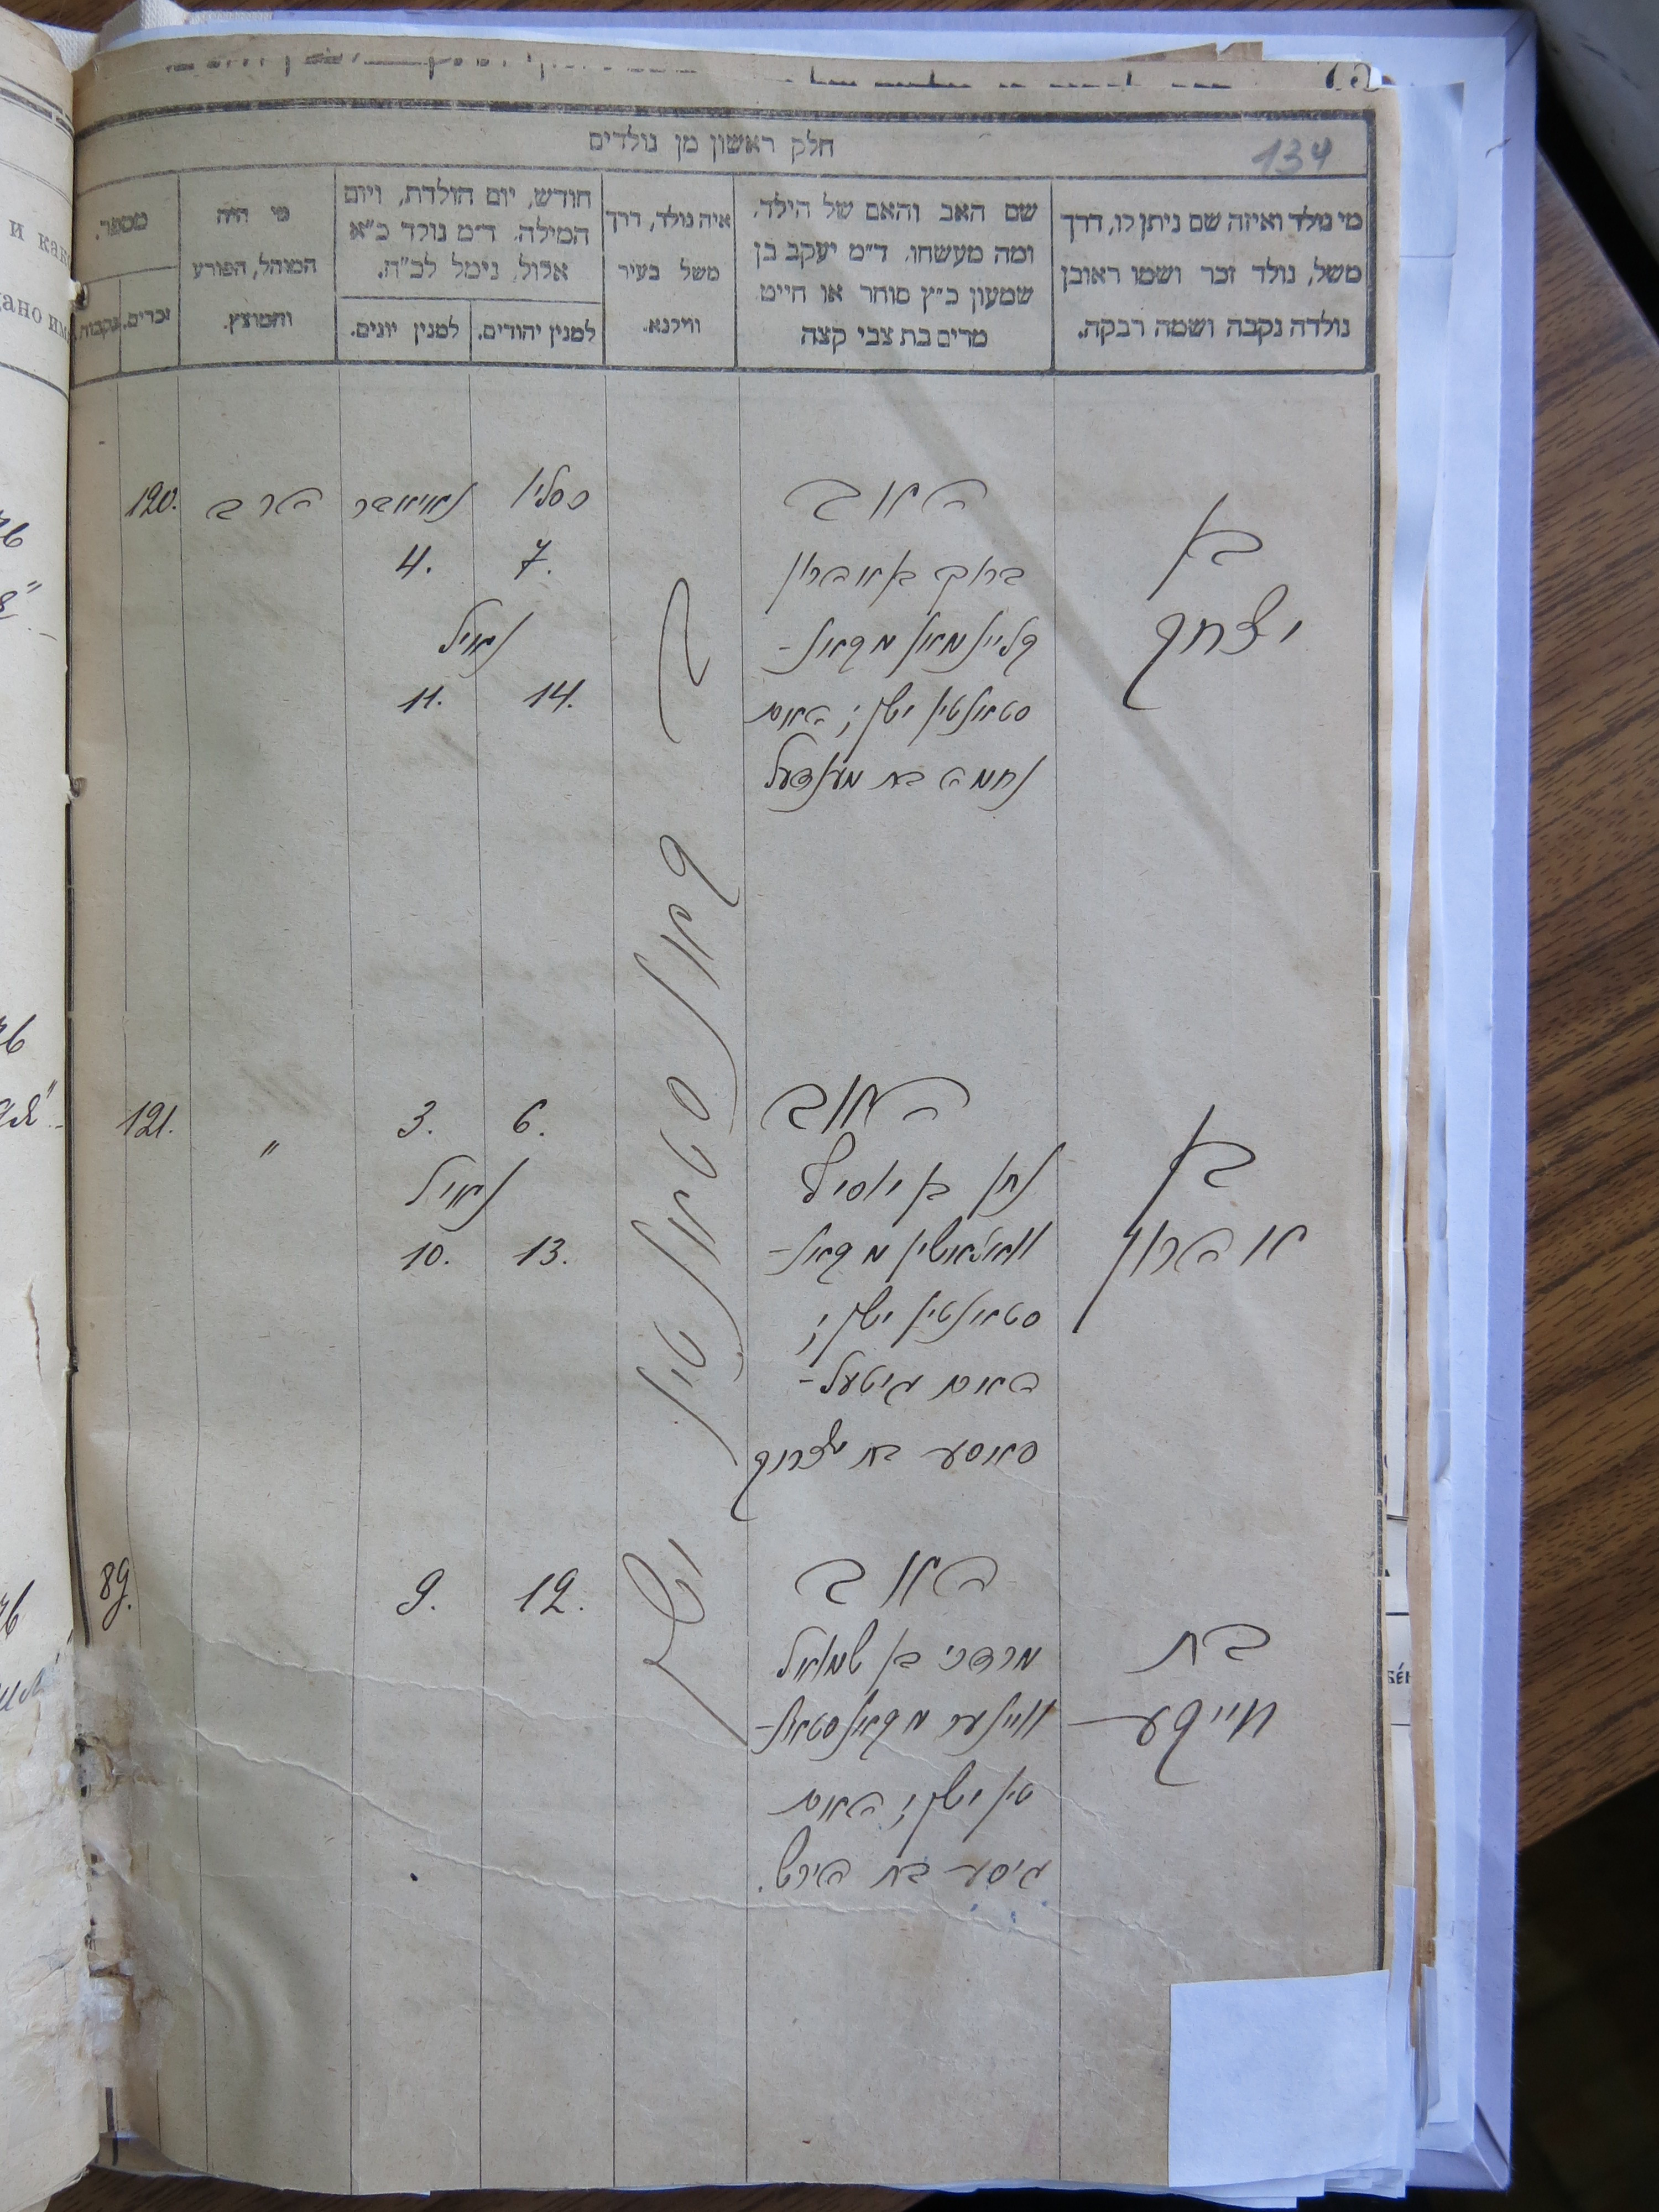 134
חלק ראשון מן נולדים
מי נולד ואיזה שם ניתן לו, דרך
משל, נולד זכר ושמו ראובן
נולדה נקבה ושמה רבקה.
שם האב והאם של הילד,
ומה מעשהו. ד"מ יעקב בן
שמעון כ"ץ סוחר או חייט
מרים בת צבי קצב
איה נולד, דרך
משל בעיר
ווילנא.
חודש, יום הולדת, ויום
המילה. ד"מ נולד כ"א
אלול, נימל לכ"ח.
למנין יהודים.
למנין יונים.
מי היה
המוהל, הפורע
והמוצץ.
מספר.
זכרים.
נקבות.
בן
יצחק
האב
ברוך בן אהרון
קליינמאן מקאנ-
סטאנטין ישן; האם
נחמה בת מענדעל
ב
קאנסטאנטין
ישן
כסליו
7.
נאויאבר
4.
נמויל
14.
11.
הרב
120.
בן
אהרון
האב
נתן בן יוסיף
מקאנ-
סטאנטין ישן;
האם גיטעל-
סאסע בת יצחק
6.
3.
נמויל
13.
10.
"
121.
בת
חייקע
האב
מרדכי בן שמואל
ווינער מקאנסטאנ-
טין ישן; האם
גיסע בת הירש.
12.
9.
89.